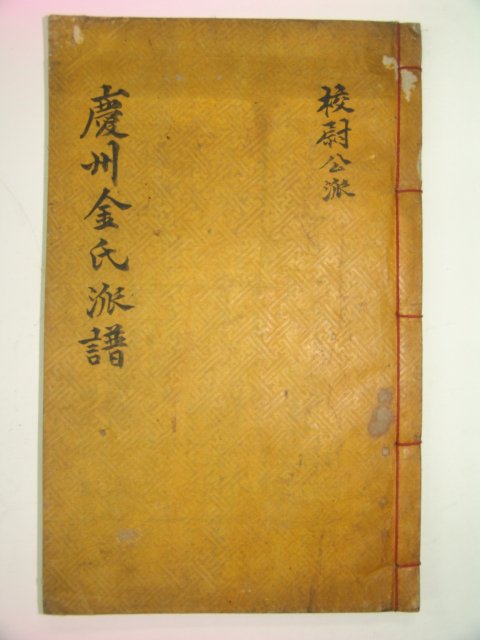 校尉公派
慶州金氏派譜